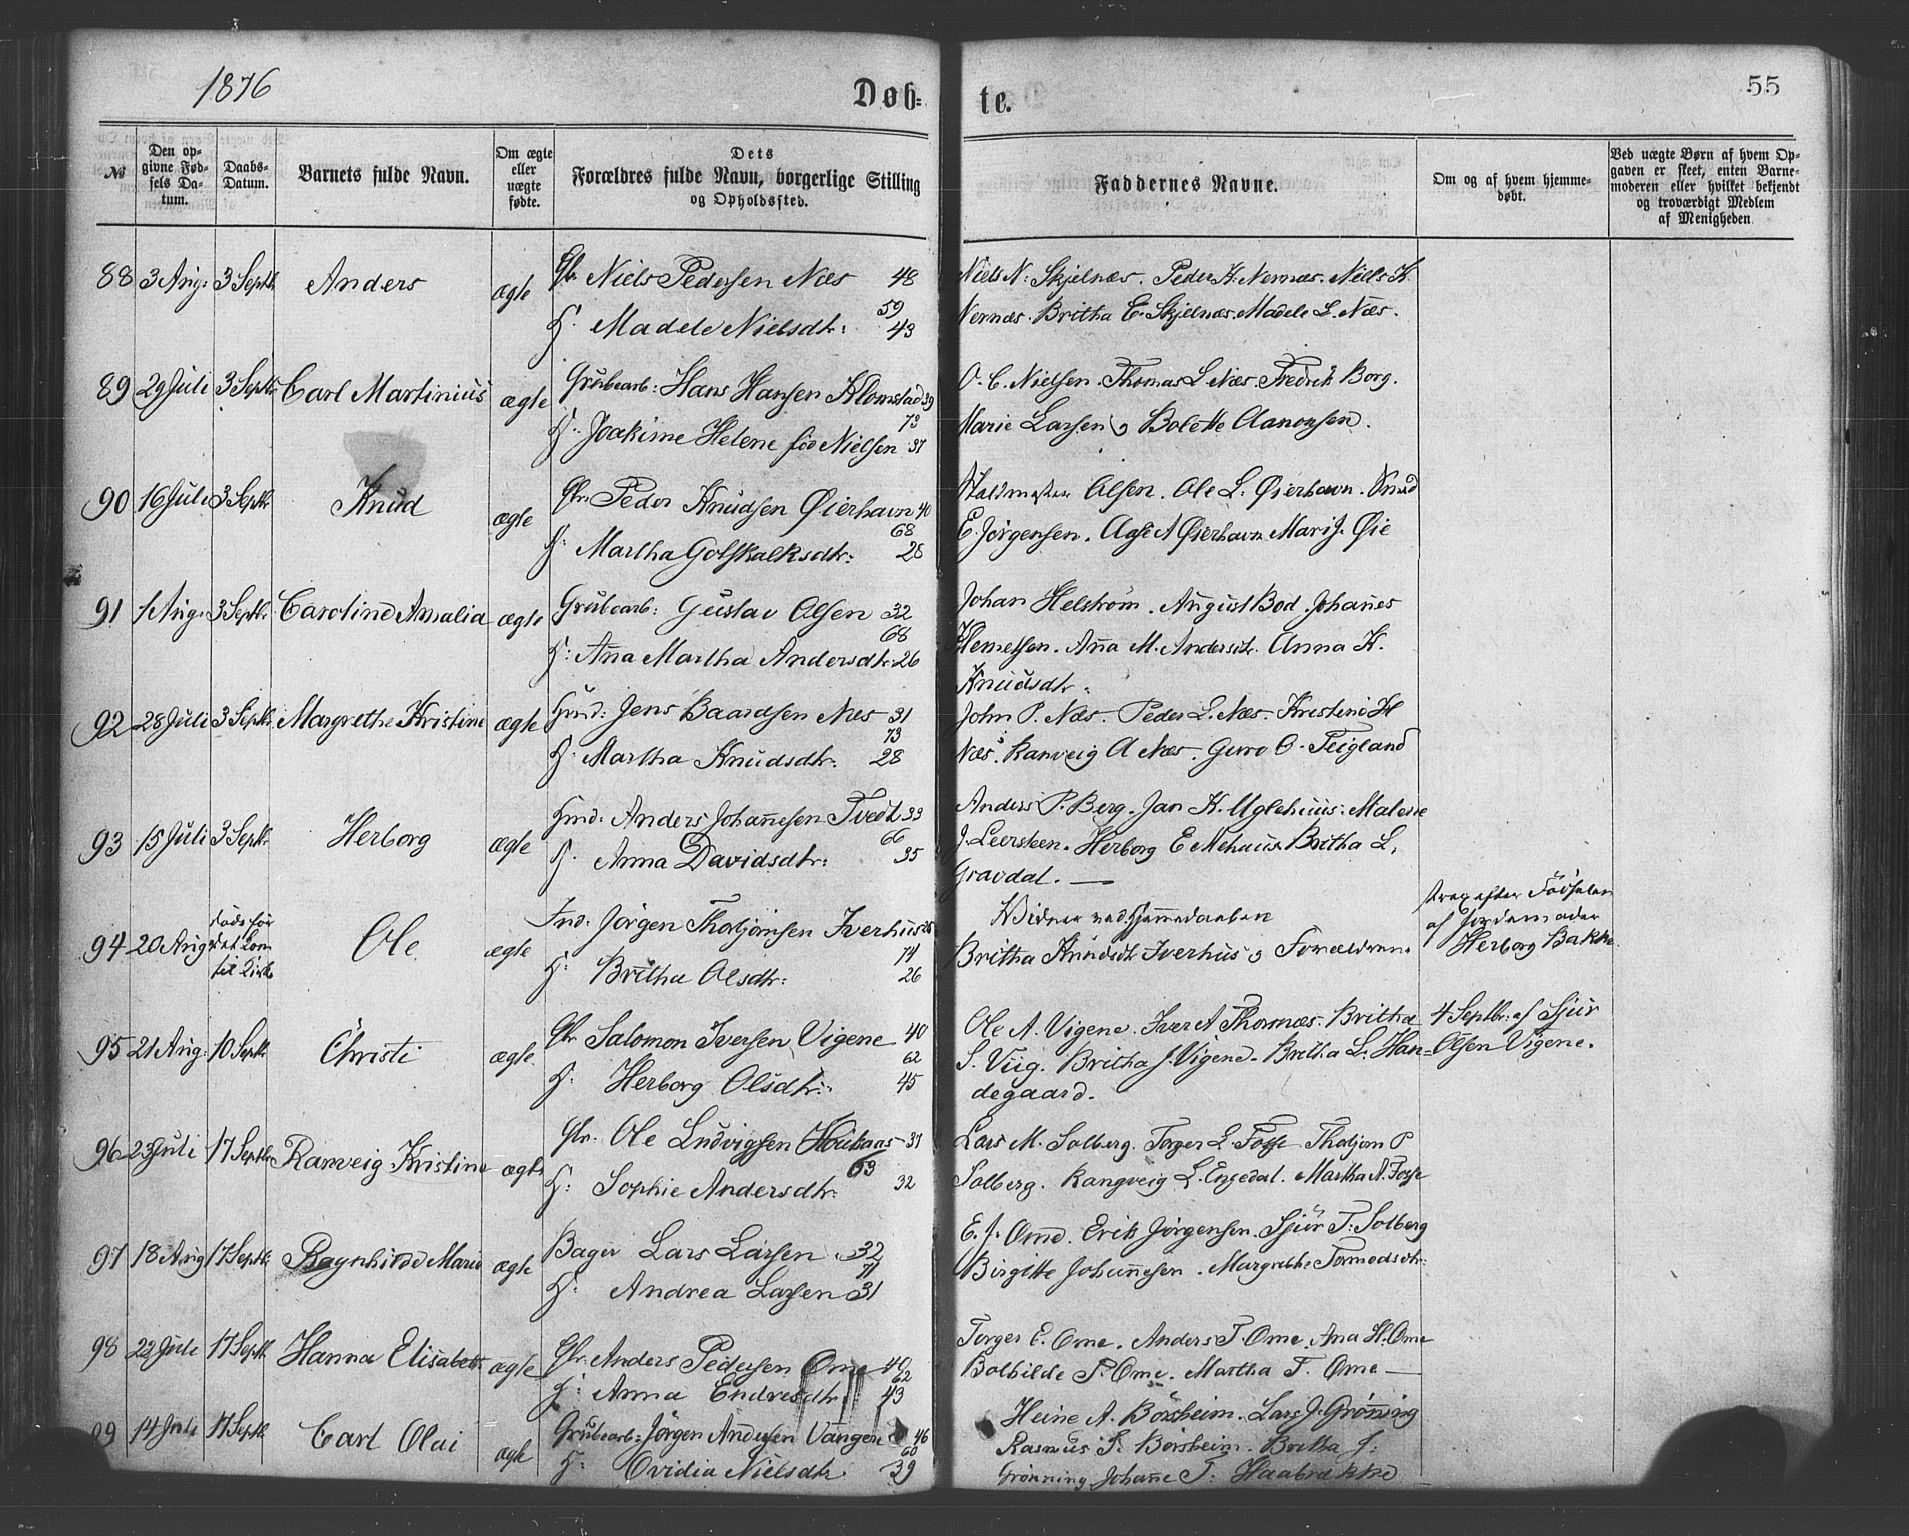 1876
Døb=
te.
55
№
Den op-
givne Fød-
sels Da-
tum.
Daabs-
Datum.
Barnets fulde Navn.
Om ægte
eller
uægte
fødte.
Dets
Forældres fulde Navn, borgerlige Stilling
og Opholdssted.
Faddernes Navne.
Om og af hvem hjemme-
døbt.
Ved uægte Børn af hvem Op-
gaven er skeet, enten Barne-
moderen eller hvilket bekjendt
og troværdigt Medlem
af Menigheden
88 3 Aug: 3 Septbr Anders ægte Gbr Niels Pedersen Næs 48
59
H. Madele Nielsdtr: 43
Niels N: Skjelnæs. Peder K. Nernæs. Niels K.
Nernæs. Britha E. Skjelnæs. Madele L. Næs.
89 29 Juli 3 Septbr Carl Martinius ægte Grubearb: Hans Hansen Klomstad 39
73
H: Joakime Helene fød Nielsen 31
O. C. Nielsen. Thomas L. Næs. Fredrik Borg.
Marie Larsen og Bolette Aanonsen.
90 16 Juli 3 Septbr Knud ægte Gbr. Peder Knudsen Øierhavn 40
68
H: Martha Gotskalksdtr: 28
Olsen. Ole L. Øierhavn. Knud
E. Jørgensen. Aase A Øierhavn Mari J. Øie
91 1 Aug. 3 Septbr. Caroline Amalia ægte Grubearb: Gustav Olsen 32
68
H: Ana Martha Andersdtr. 26
Johan Helstrøm. August Bod. Johanes
Klemetsen. Ana M. Andersdtr. Anna K.
Knudsdtr.
92 28 Juli 3 Septbr. Margrethe Kristine ægte Husmd: Jens Baardsen Næs 31
73
H: Martha Knudsdtr. 28
John P. Næs. Peder L. Næs. Kristine H
Næs. Ranveig A Næs. Guro O. Teigland
93 15 Juli 3 Septbr. Herborg ægte Husmd: Anders Johannesen Tvedt 33
66
H. Anna Davidsdtr: 35
Anders P. Berg. Jan K. Uglehuus. Malene
J. Leersteen. Herborg E Nehuus. Britha L.
Gravdal.
94 20 Aug døde før
det kom
til Kirke Ole ægte Ind: Jørgen Thorbjørnsen Iverhus 25
74
H: Britha Olsdtr: 26
Vidner ved Hjemmedaaben
Britha Knudsdtr Iverhus og Forældrene.
strax efter Fødselen
af Jordemoder
Herborg Bakke
95 21 Aug: 10 Septbr Christi ægte Gbr Salomon Iversen Vigene 40
62
H: Herborg Olsdtr: 45
Ole A. Vigene. Iver A Thornæs. Britha
S. Viig. Britha J. Vigene. Britha L. Han-
degaard.
4 Septbr: af Sjur
Olsen Vigene.
96 23 Juli 17 Septbr Ranveig Kristine ægte Gbr. Ole Ludvigsen Houkaas 31
63
H: Sophie Andersdtr. 32
Lars M. Solberg. Torger L. Fosse. Thorbjørn P
Solberg. Rangveig L. Engedal. Martha A. Fosse
97 18 Aug 17 Septbr. Ragnhilde Marie ægte Bager Lars Larsen 32
71
H: Andrea Larsen 31
E. J. Ome. Erik Jørgensen. Sjur T. Solberg
Birgitte Johannesen. Margrethe Tormodsdtr:
98 22 Juli 17 Septbr Hanna Elisabeth ægte Gbr. Anders Pedersen Ome 40
62
H: Anna Endresdtr. 43
Torger E. Ome. Anders T. Ome. Ana H. Ome
Bolhilde P. Ome. Martha T. Ome
99 14 Juli 17 Septbr. Carl Olai ægte Grubearb: Jørgen Andersen Vangen 46
60
H: Ovidia Nielsdtr 39
Heine A. Børsheim. Lars J. Grønning
Rasmus S. Børsheim. Britha J:
Grønning Johanne T: Haabrekke